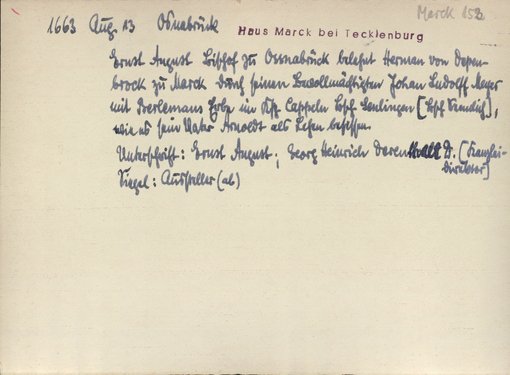 Marck 152
1663 Aug. 13 Osnabrück Haus Marck bei Tecklenburg
Ernst August Bischof zu Ossnabrück belehnt Herman von Depen-
brock zu Marck durch seinen Bevollmächtigten Johan Ludolff Meyer
mit Erbe im Ksp. Cappeln Bsch.
wie es sein Vater Arnoldt als Lehen besessen.
Unterschrift: Ernst August; Georg Heinrich D. [Kanzlei-
direktor]
Siegel: Aussteller (ab)